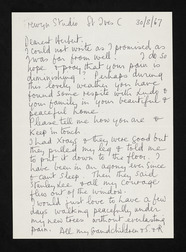 Trewyn Studio St Ives C 30/8/67
Dearest Herbert.
I could not write as I promised as
I was far from well. I do so
hope & pray that your pain is
diminishing! Perhaps during
this lovely weather you have
found some respite with family &
your family in your beautiful &
peaceful home.
Please tell me how you are &
Keep in touch
I had Xrays & they were good but
they pulled my leg & told me
to put it down to the floor. I
have been in an agony ever since
& cant sleep. Then they said
& all my courage
flew out of the window.
I would just love to have a few
days working peacefully under
my new trees without everlasting
pain. All my Grandchildren